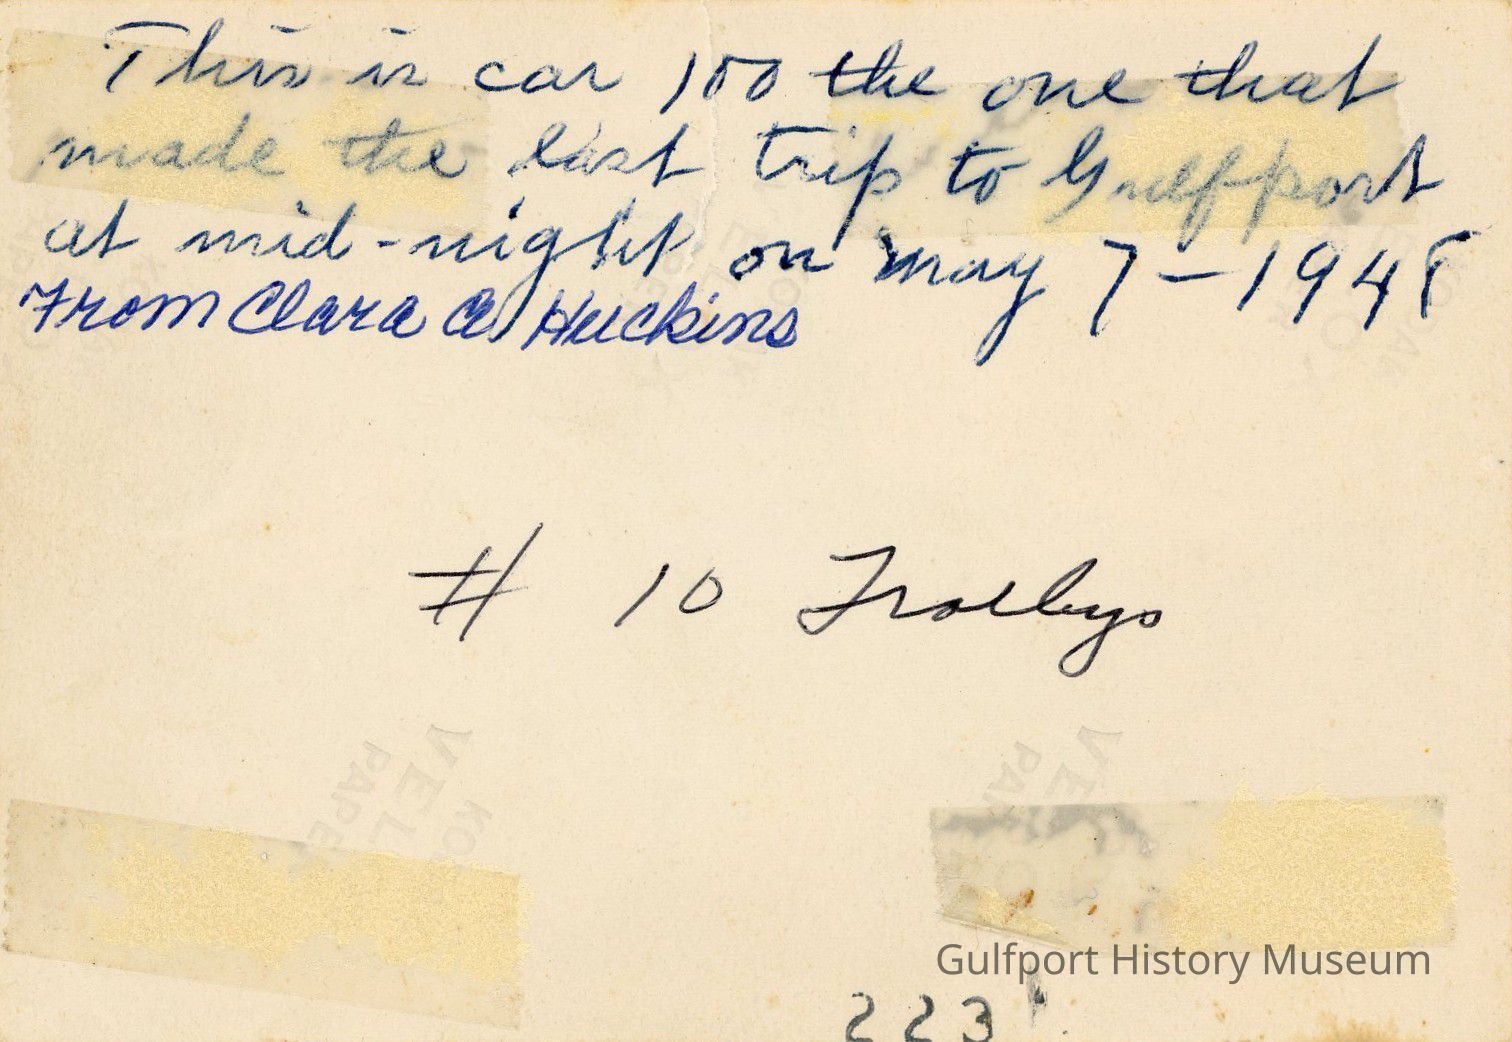 This is car 100 the one that
made the last trip to Gulfport
at mid-night on may 7-1948
From Clara A. Huckins
# 10 Trolleys
Gulfport History Museum
223